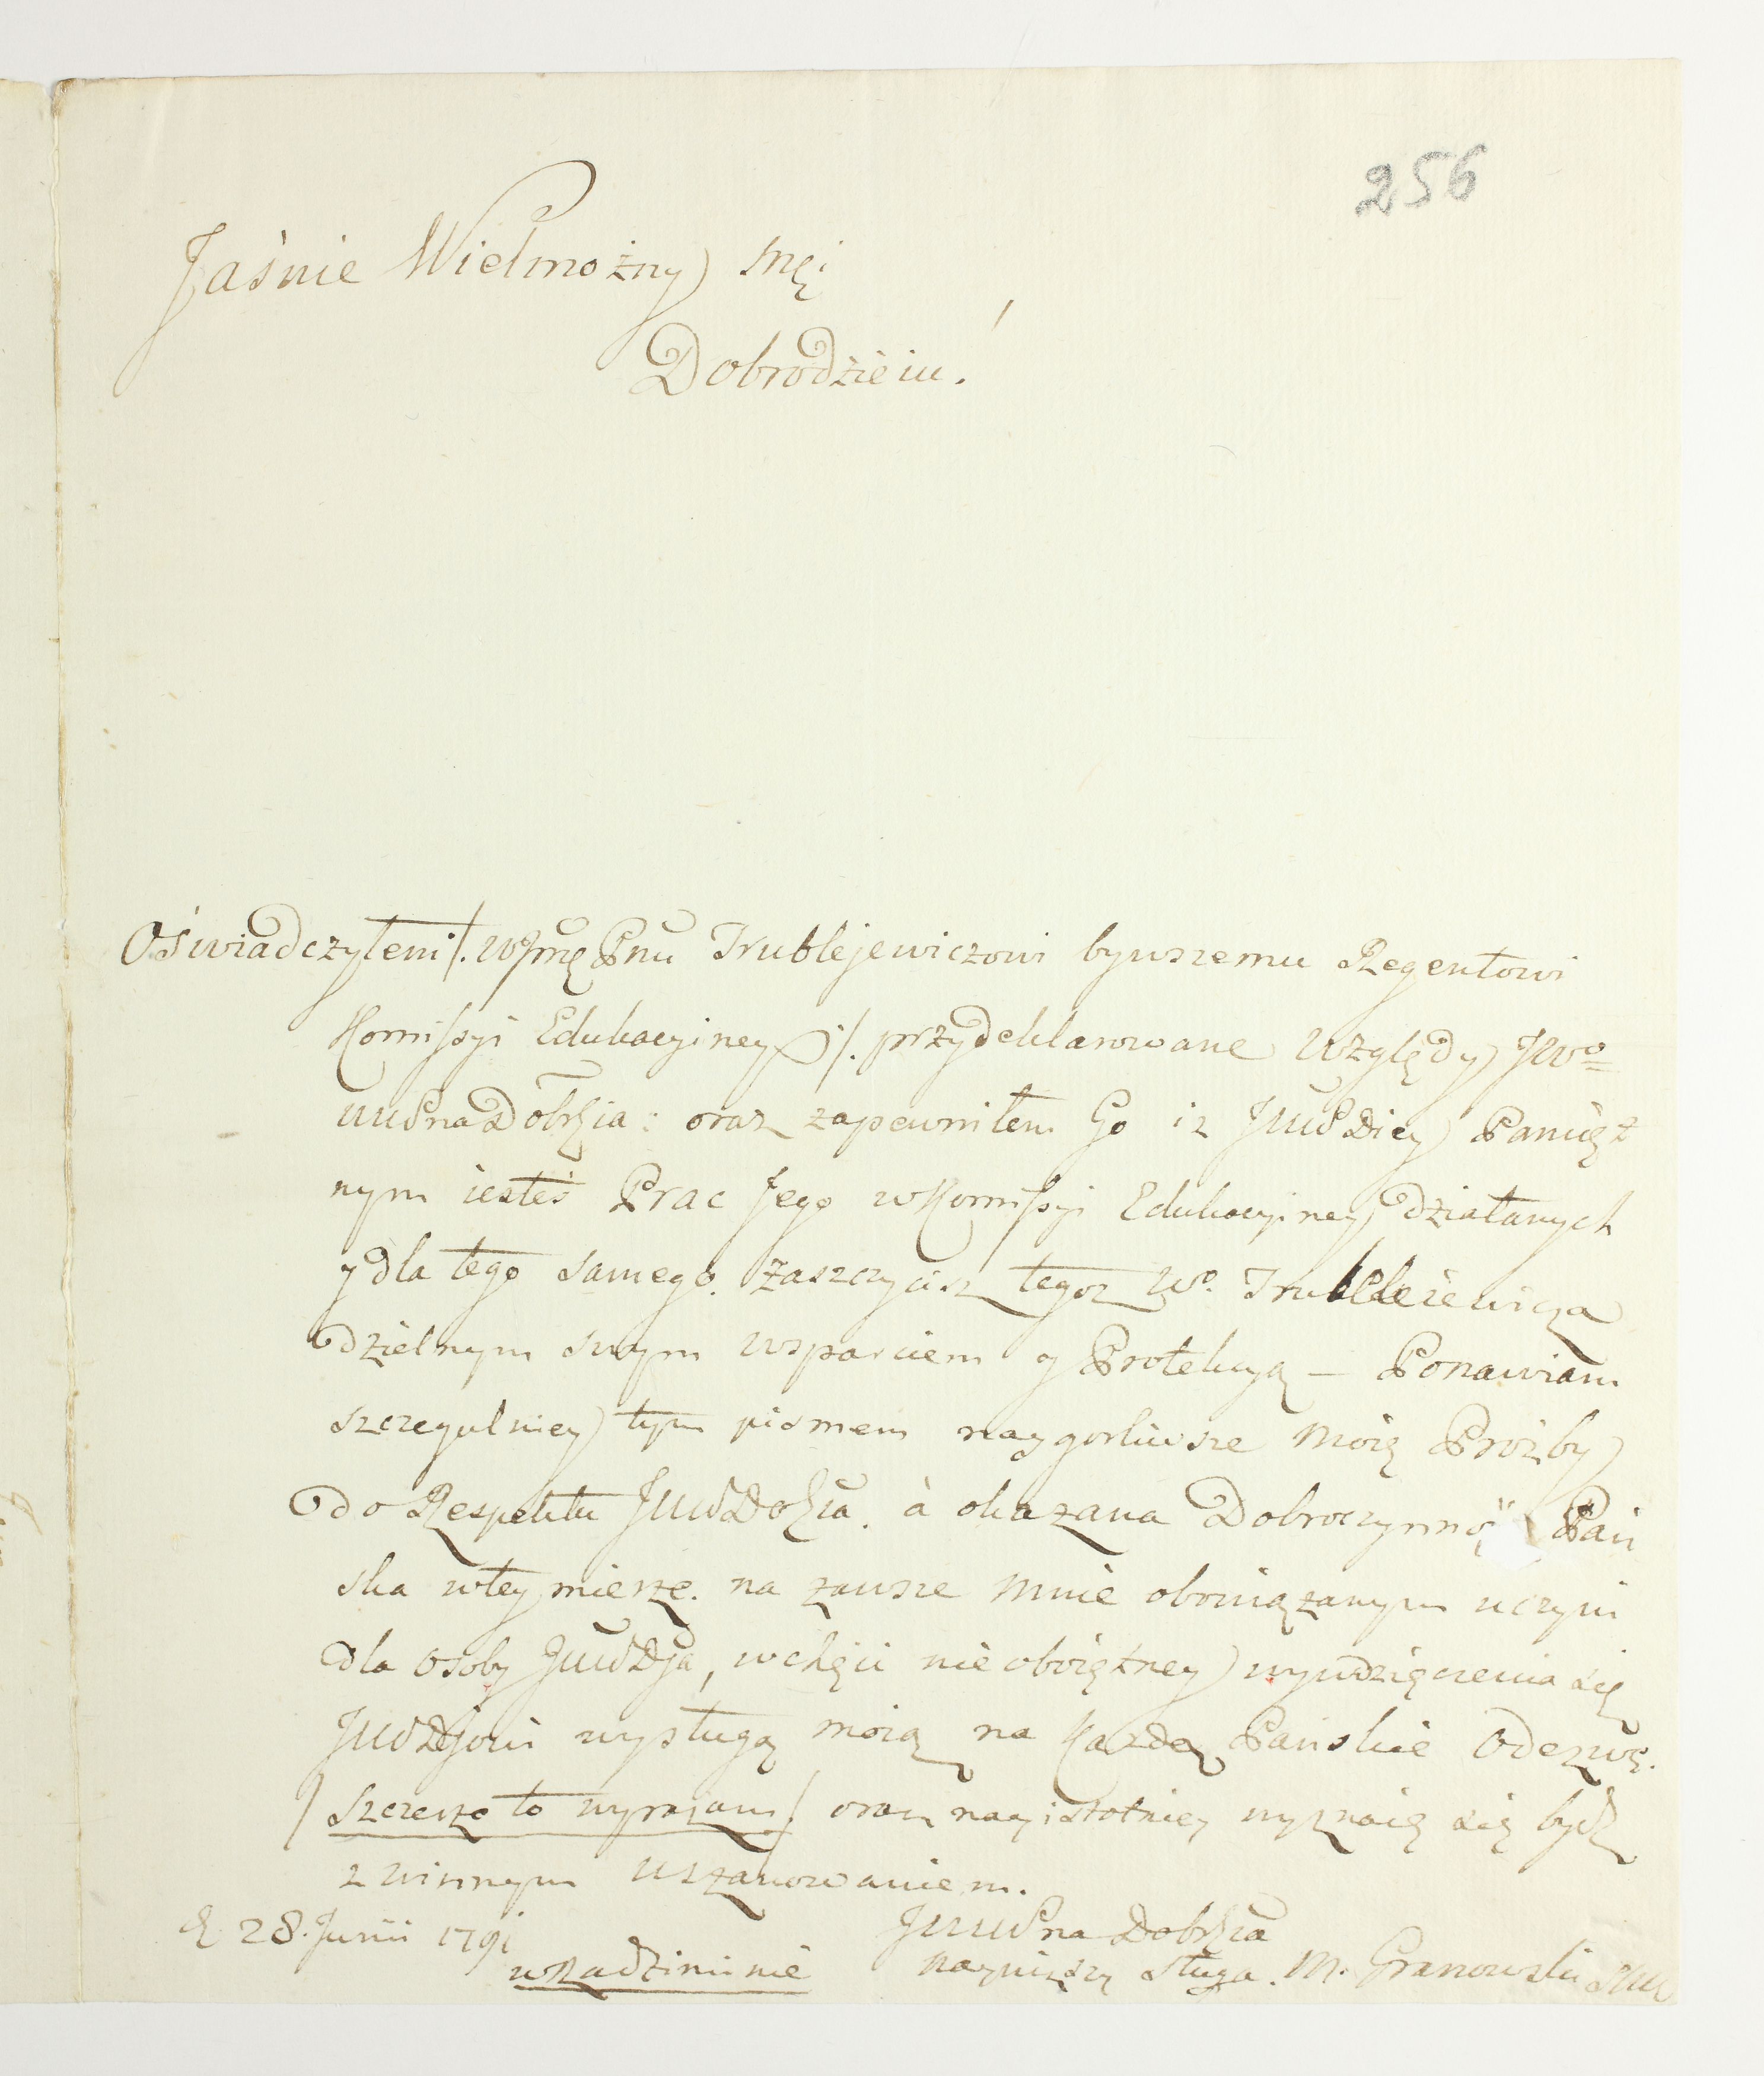 256
Jaśnie Wielmożny Mći
Dobrodzieiu!
Oświadczyłem /. WJmę Pnu Trublejewiczowi bywszemu Regentowi
Komissyi Edukacyiney ./. przydeklarowane Względy JWo
WWPna Dobrzia: oraz zapewniłem Go iz JWWPDiey Pamięt
nym iesteś Prac Jego w Komissyi Edukacyiney działanych
y dla tego samego. Zaszczycisz tegoz Wo. Trublejewicza
dzielnym swym wsparciem y Protekcyą – Ponawiam
szczegulniey tym pismem naygorliwsze Moię Proźby
do Respektu JWWDobzia. à okazana Dobroczynnoś, Pań
ska wtey mierze. na zawsze Mnie obowiązanym uczyni
dla osoby JWWDja, w chęci nie oboiętney wywdzięczenia się
JWWDjowi wysługą moią na Kazdą Pańskie Odezwę.
/ szczerze to wyrazam / oraz nayistotniey wyznaię się bydź
z winnym uszanowaniem.
D. 28. Junii 1791
w Radziminie
JWWPna Dobrzia
Nayniższy Sługa. M. Granowski